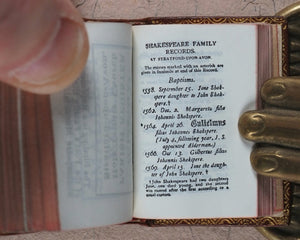 SHAKESPEARE FAMILY
RECORDS.
AT STRATFORD-UPON-AVON.
The entries marked with an asterisk are
given in facsimile at end of this Record.
Baptisms.
1558. September 15. Jone Shak-
spere daughter to John Shak-
spere.†
1562. Dec. 2. Margareta filia
Johannis Shakspere.
*1564. April 26. Gulielmus
filius Johannes Shakspere.
(July 4, following year, J. S.
appointed Alderman.)
1566. Oct. 13 Gilbertus filius
Johannis Shakspere.
1569. April 15. Jone the daughter
of John Shakspere.†
† John Shakespeare had two daughters
Jone, one died young, and the second
was named after the first according to a
usual custom.